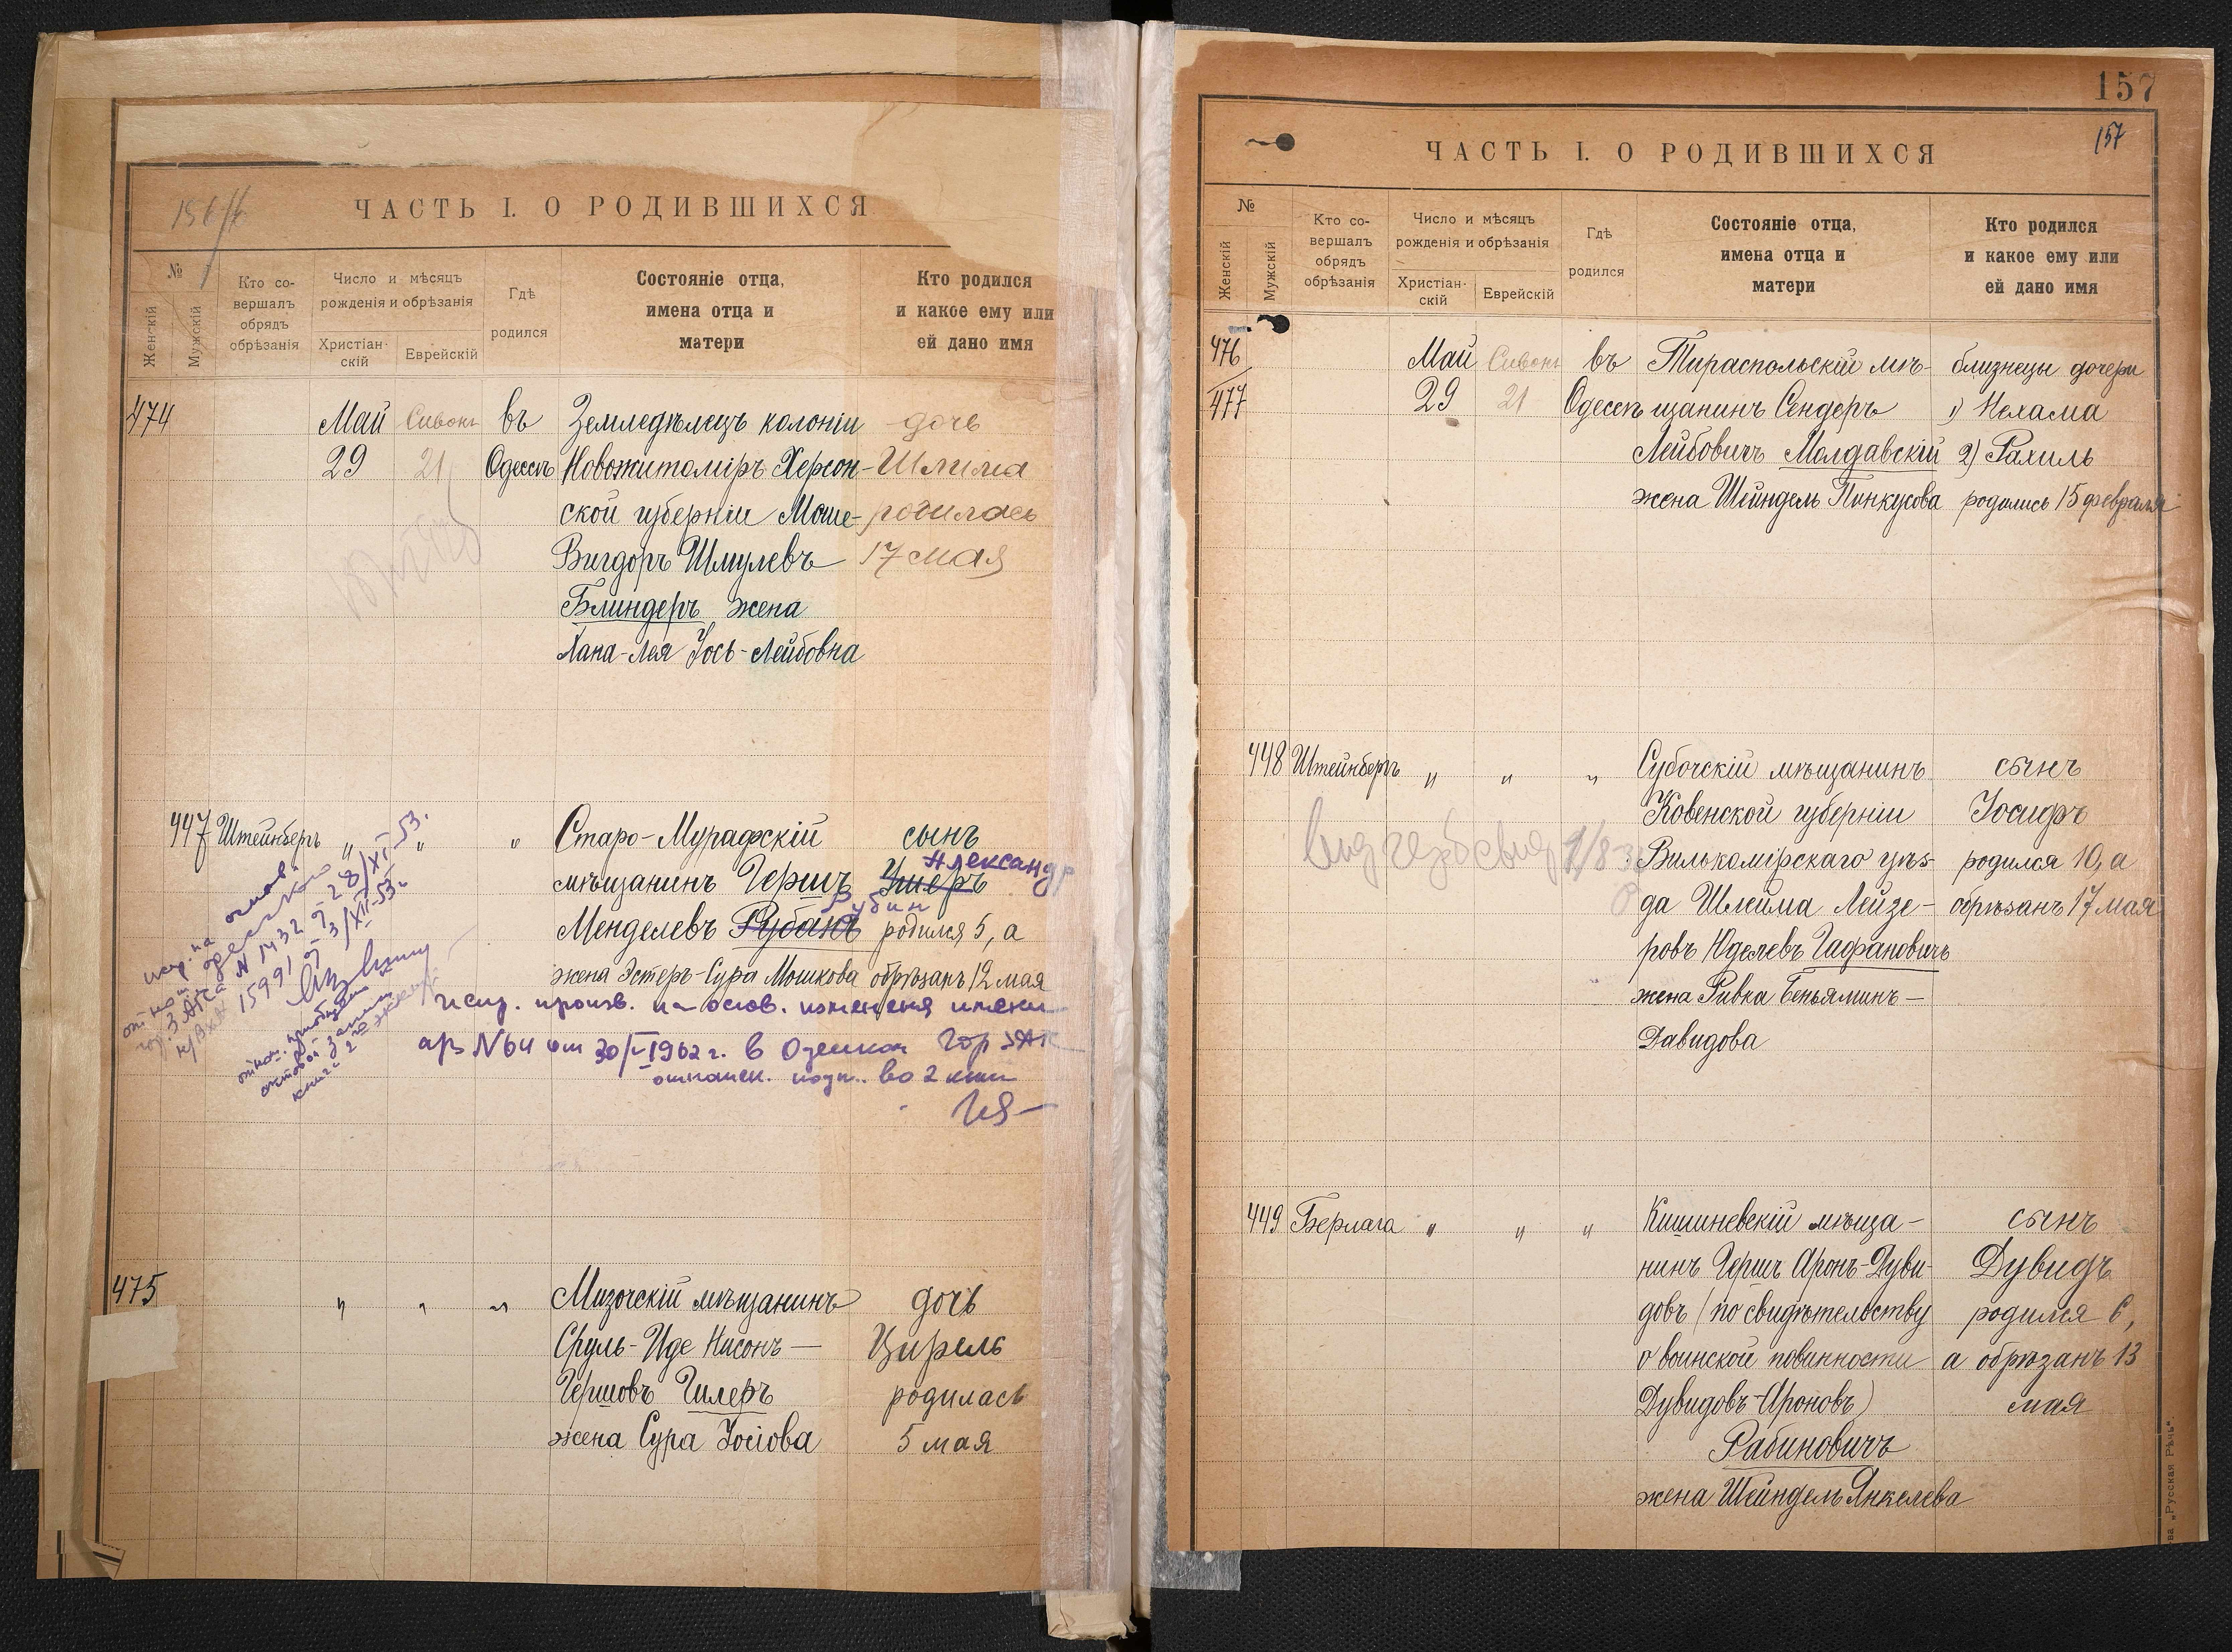 156/б
ЧАСТЬ I. О РОДИВШИХСЯ
№
Женскій
Мужскій
Кто со-
вершалъ
обрядъ
обрѣзанія
Число и мѣсяцъ
рожденія и обрѣзанія
Христіан-
скій
Еврейскій
Гдѣ
родился
Состояніе отца,
имена отца и
матери
Кто родился
и какое ему или
ей дано имя
474 Май Сивонъ въ Земледѣлецъ колоніи дочь
29 21 Одессѣ Новожитоміръ Херсон- Шлима
ской губерніи Моше- родилась
Вигдоръ Шмулевъ 17 мая
Блиндеръ жена
Хана-Лея Іось-Лейбовна
447 Штейнбергъ „ „ „ Старо-Мурафскій сынъ
Александр
мѣщанинъ Гершъ Умеръ
Рубин
Менделевъ Рубанъ родился 5, а
жена Эстеръ-Сура Мошкова обрѣзанъ 12 мая
испр. на основ.
N 1432 от 28/XI 53.
15991 от 3/XII-53г.
испр. произв. на основ. изменения имени
а/з N 64 от 30/V-1962 г. в Одесском Гор ЗАГС
во 2 кни
475 „ „ „ Мизочскій мѣщанинъ дочь
Сруль-Иде Нисонъ- Цирель
Гершовъ Гилеръ родилась
жена Сура Іосіова 5 мая
157
157
ЧАСТЬ I. О РОДИВШИХСЯ
№
Женскій
Мужскій
Кто со-
вершалъ
обрядъ
обрѣзанія
Число и мѣсяцъ
рожденія и обрѣзанія
Христіан-
скій
Еврейскій
Гдѣ
родился
Состояніе отца,
имена отца и
матери
Кто родился
и какое ему или
ей дано имя
476 Май Сивонъ въ Тираспольскій мѣ- близнецы дочери
477 29 21 Одессѣ щанинъ Сендеръ 1) Нехама
Лейбовичъ Молдавскій 2) Рахиль
жена Шейндель Пинкусова родились 15 февраля
448 Штейнбергъ „ „ „ Субочскій мѣщанинъ сынъ
Ковенской губерніи Іосифъ
Вилькомірскаго уѣз- родился 10, а
да Шлейма Лейзе- обрѣзанъ 17 мая
ровъ Юделевъ Гафановичъ
жена Ривка Беньяминъ-
Давидова
449 Берлага „ „ „ Кишиневскій мѣща- сынъ
нинъ Гершъ Аронъ-Дуви- Дувидъ
довъ (по свидѣтельству родился 6,
о воинской повинности а обрѣзанъ 13
Дувидовъ-Ароновъ) мая
Рабиновичъ
жена Шейндель Янкелева
ва „Русская Рѣчь“